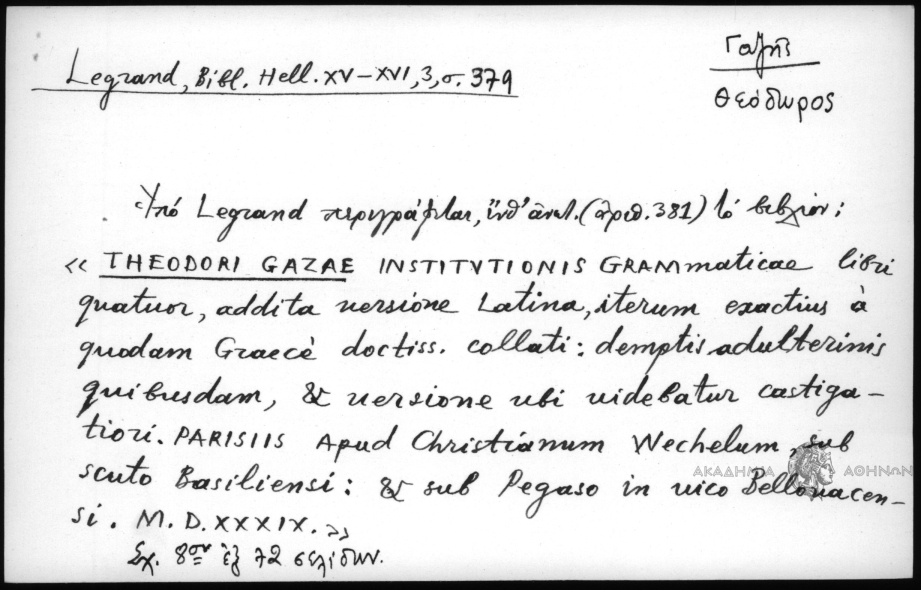 Legrand, Βιβλ. Hell. XV-XVI, 3, σ. 379
Γαζῆς
Θεόδωρος
Ὑπό Legrand περιγράφεται, ὑπ' ἀριθ. 381) τό βιβλίον:
« THEODORI GAZAE INSTITVTIONIS GRAMmaticae libri
quatuor, addita uersione Latina, iterum exactius à
quodam Graecè doctiss. collati: demptis adulterinis
quibusdam, & uersione ubi uidebatur castiga-
tiori. PARISIIS Apud Christianum Wechelum, sub
scuto Basiliensi: & sub Pegaso in uico Bellouacen-
si. M. D. XXXIX. »
Σχ. 8ον ἐξ 72 σελίδων.
ΑΚΑΔΗΜΙΑ ΑΘΗΝΩΝ